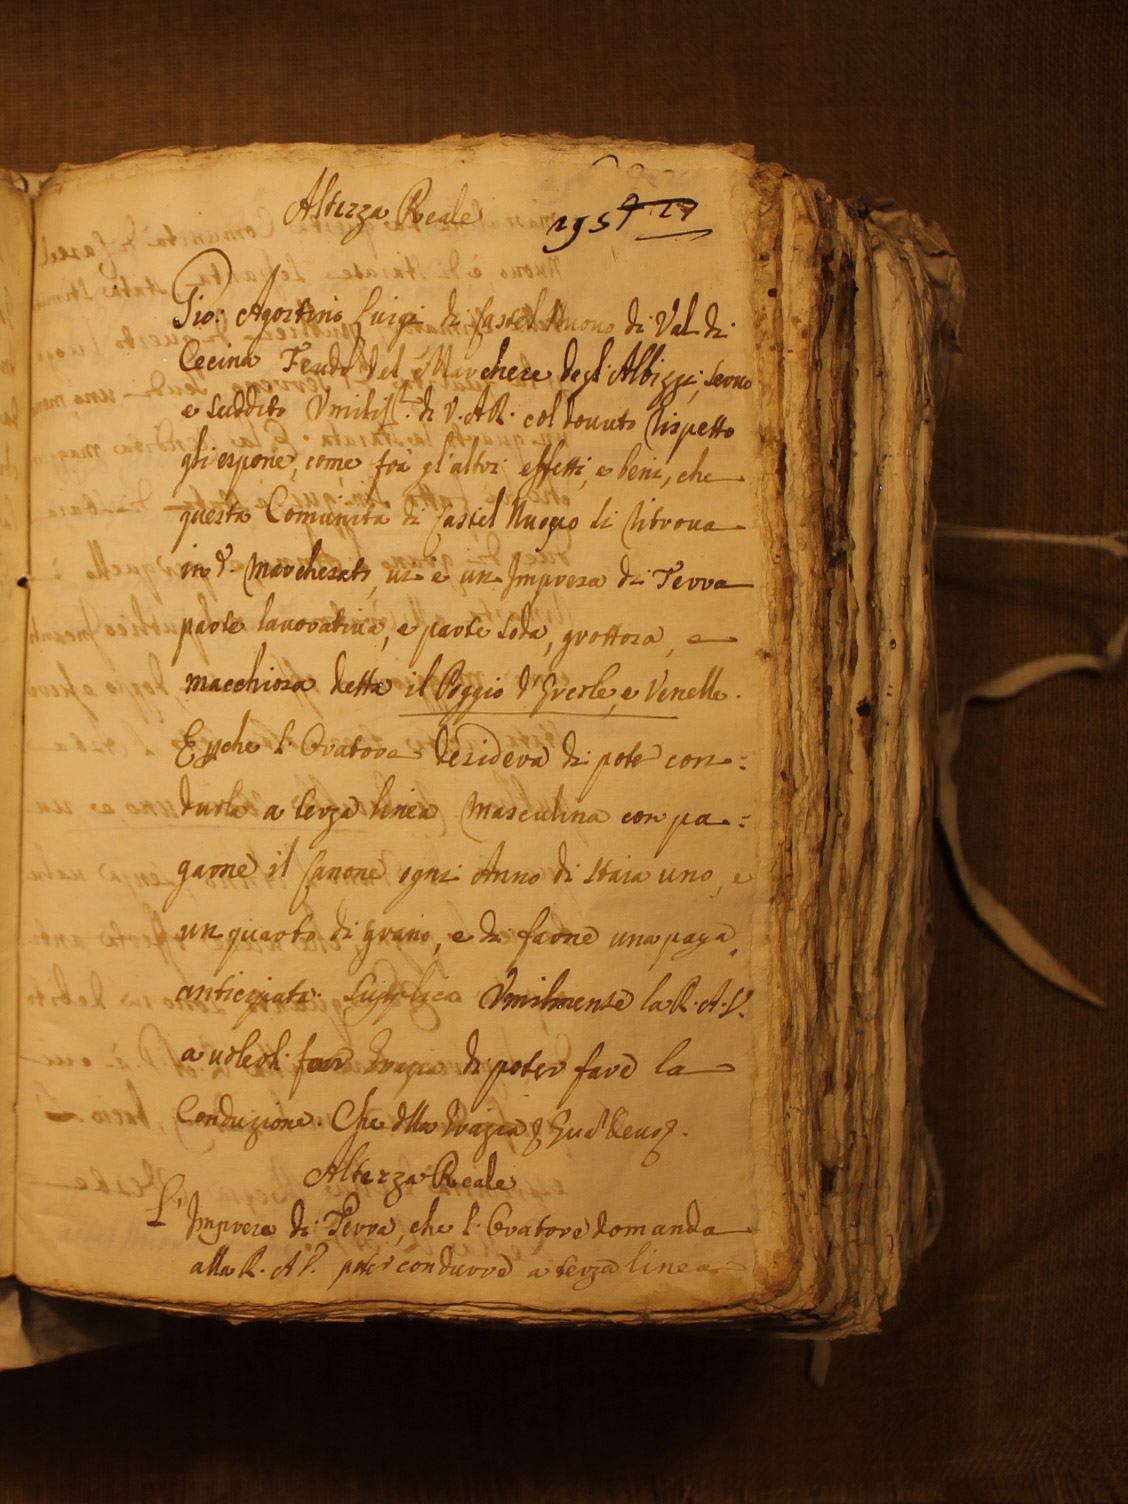 Altezza Reale
195
Gio: Agostino Luigi di Castel Nuouo di Val di
Cecina Feudo del Marchese degl'Albizzi, seruo
e suddito Vmiliss.º di V. A. R. col douuto rispetto
gli espone, come frà gl'altri effetti, e beni, che
questa Comunità di Castel Nuouo si ritroua
in d.º Marchesato, ui è un Impresa di Terra
parte lauoratiua, e parte soda, grottosa, e
macchiosa detta il Poggio d' e Venelle.
E perche l'Oratore desidera di poter con=
durla a terza linea Masculina con pa=
garne il Canone ogni Anno di staia uno, e
un quarto di grano, e di farne una paga
anticipata. Supplica Vmilmente la R. A. V.
a uolerli far grazia di poter fare la
Conduzione. Che della grazia
Altezza Reale
L'Impresa di Terra, che l'Oratore domanda
alla R. A. V. poter condurre a terza linea